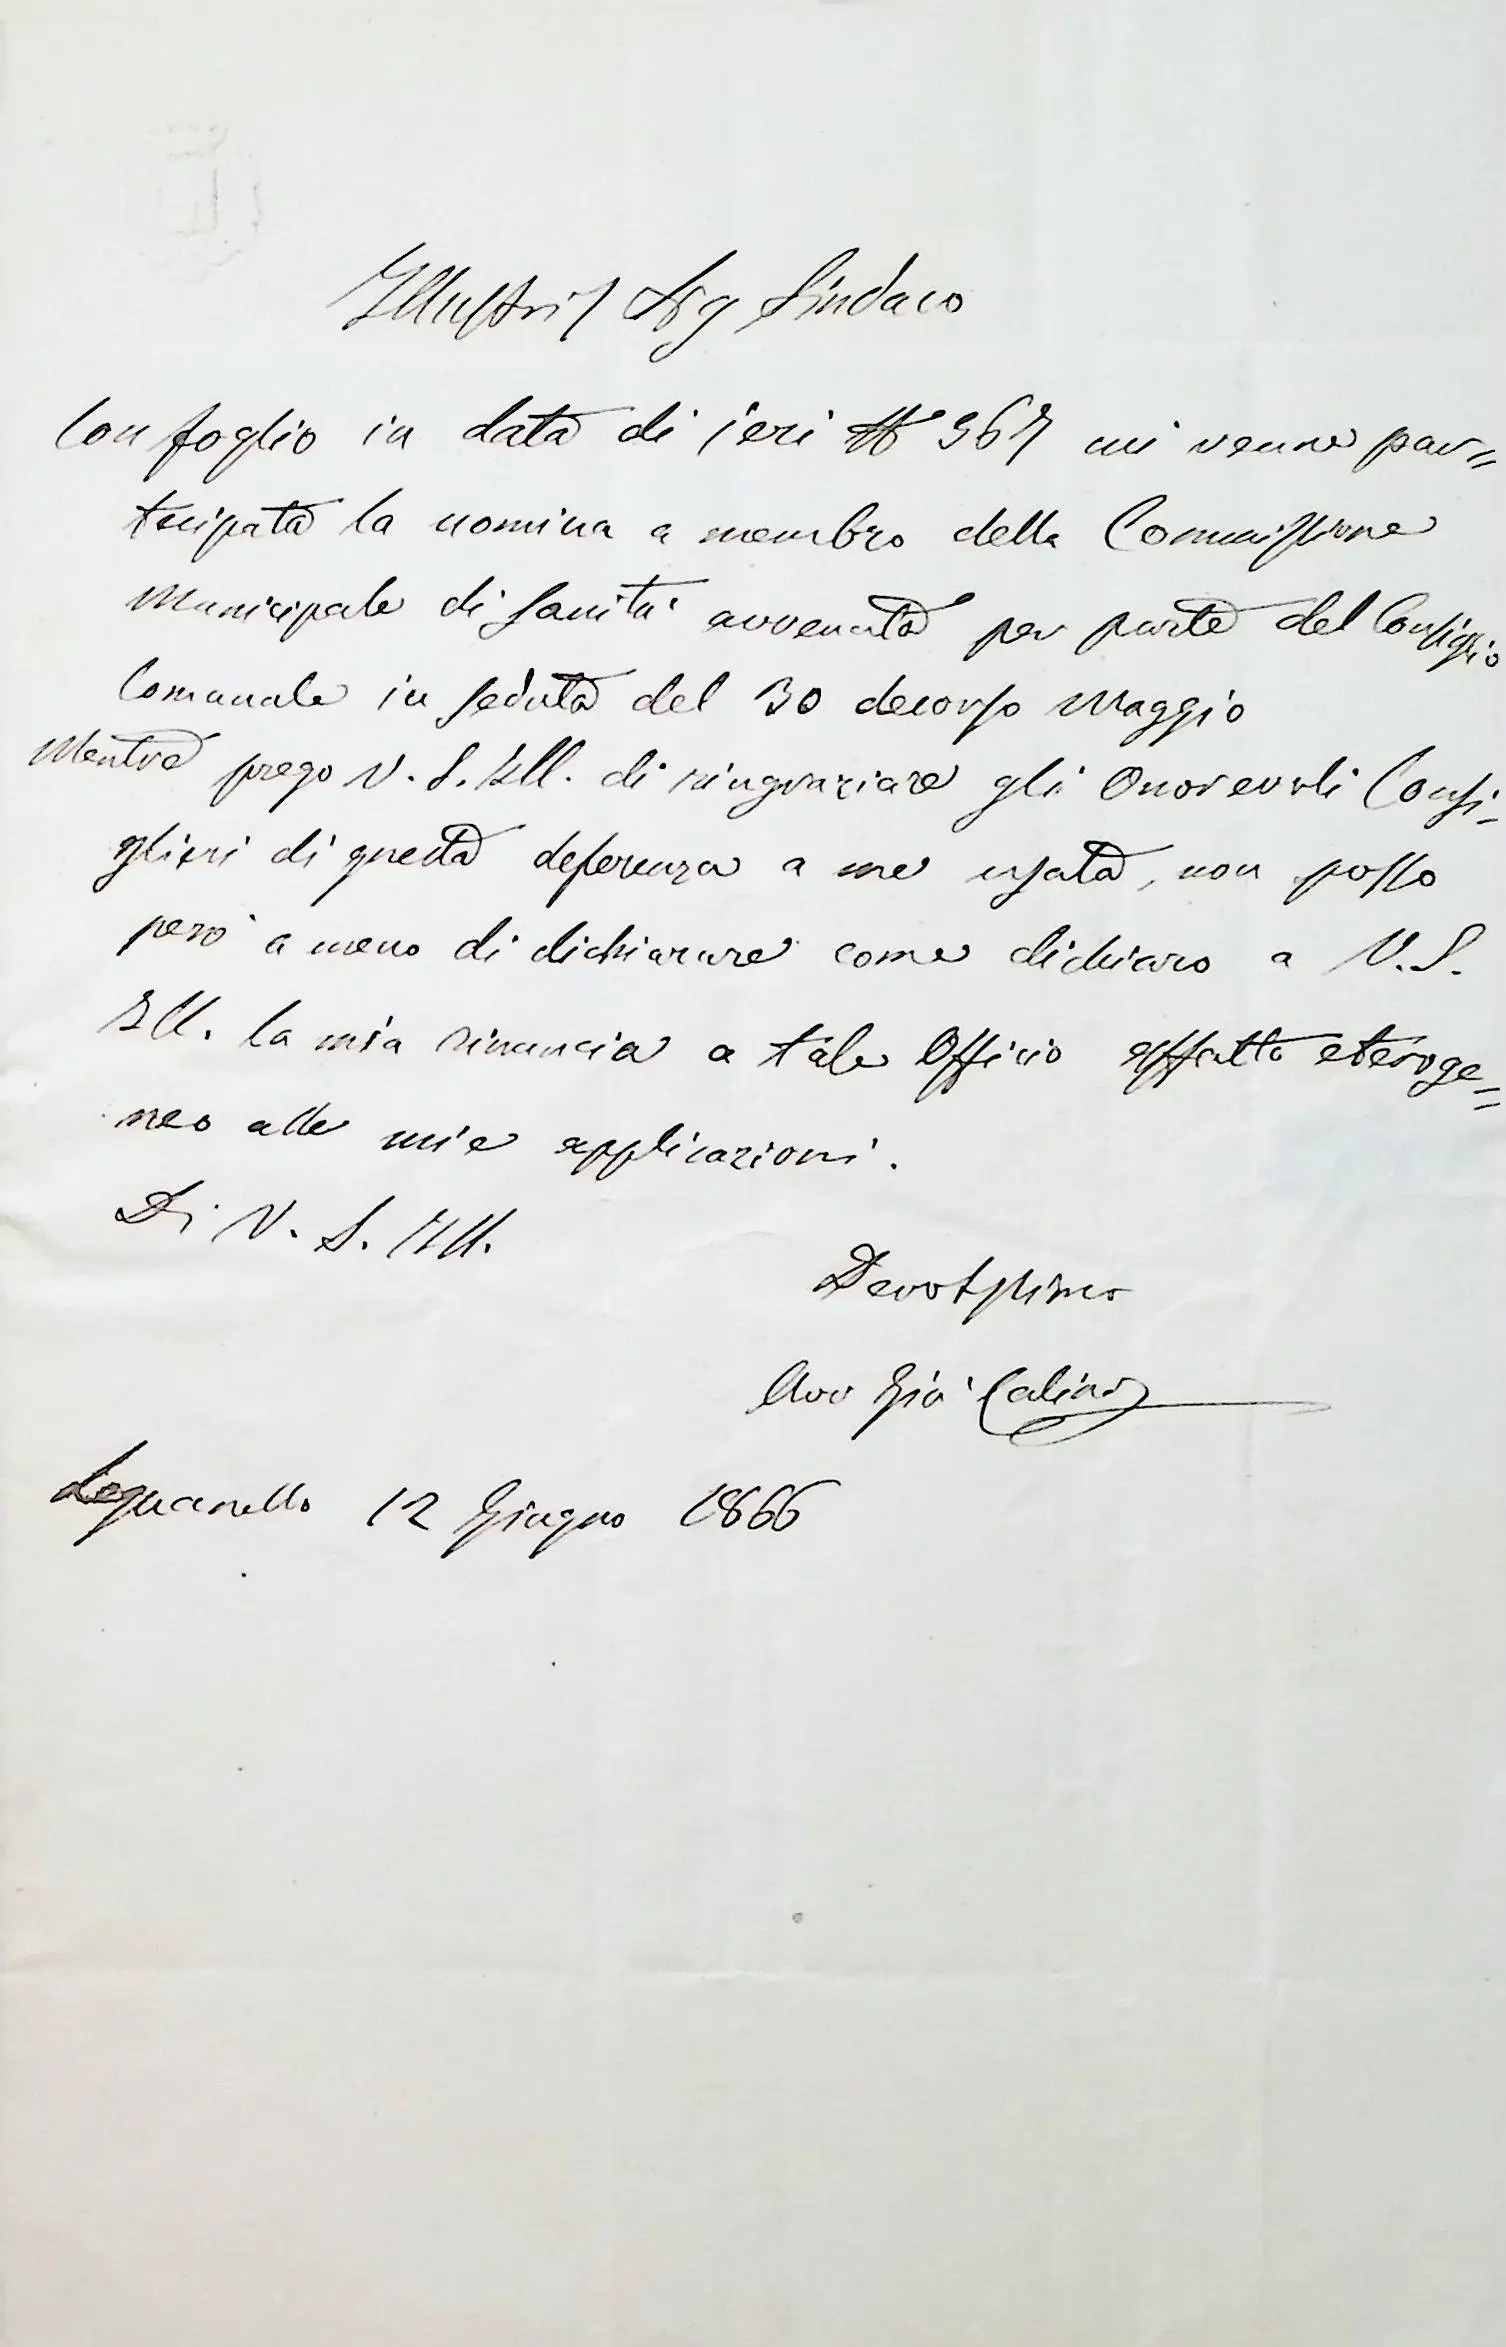 Illustris Sig Sindaco
Con foglio in data di jeri N 367 mi venne par=
tecipata la nomina a membro della Commissione
Municipale di Sanità avvenuta per parte del Consiglio
Comunale in seduta del 30 decorso Maggio
Mentre prego V. S. Ill. di ringraziare gli Onorevoli Consi-
glieri di questa deferenza a me usata, non posso
però a meno di dichiarare come dichiaro a V. S.
Ill. la mia rinuncia a tale Officio affatto eteroge=
neo alle mie applicazioni.
Di V. S. Ill.
Devotissimo
Avv Già Calini
12 Giugno 1866